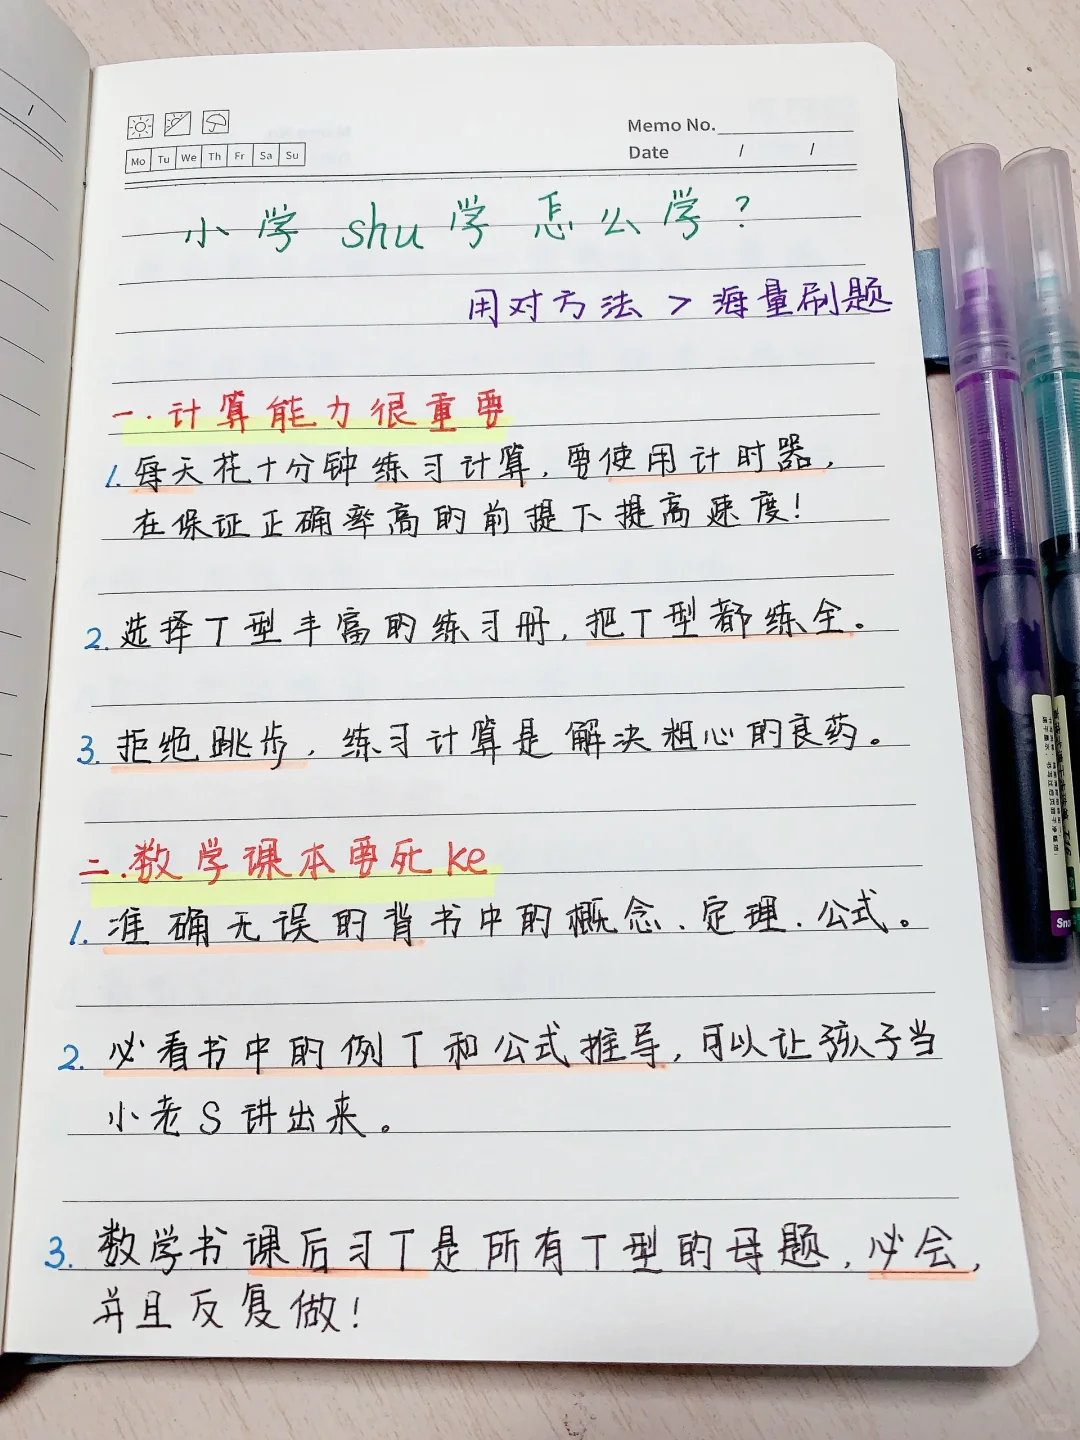 Memo No.
Mo Tu We Th Fr Sa Su
Date / /
小学 shu学 怎么学?
用对方法 > 海量刷题
一.计算能力很重要
1.每天花十分钟练习计算,要使用计时器,
在保证正确率高的前提下提高速度!
2.选择T型丰富的练习册,把T型都练全。
3.拒绝跳步,练习计算是解决粗心的良药。
二.数学课本要死ke
1.准确无误的背书中的概念、定理、公式。
2.必看书中的例T和公式推导,可以让孩子当
小老S讲出来。
3.数学书课后习T是所有T型的母题,必会,
并且反复做!